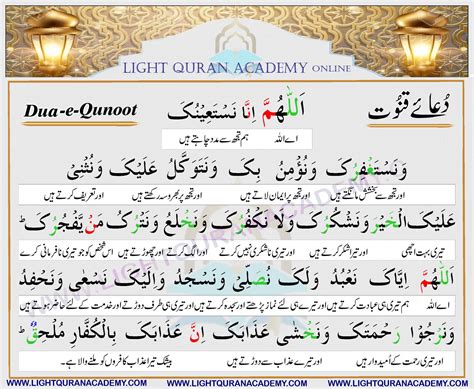 LIGHT QURAN ACADEMY ONLINE
Dua-e-Qunoot
دُعائے قنوت
اَللّٰهُمَّ اِنَّا نَسْتَعِيْنُكَ
اے اللہ ہم تجھ سے مدد چاہتے ہیں
وَنَسْتَغْفِرُكَ وَنُؤْمِنُ بِكَ وَنَتَوَكَّلُ عَلَيْكَ وَنُثْنِىْ
اور تجھ سے بخشش مانگتے ہیں اور تجھ پر ایمان لاتے ہیں اور تجھ پر بھروسہ رکھتے ہیں اور تعریف کرتے ہیں
عَلَيْكَ الْخَيْرَ وَنَشْكُرُكَ وَلَا نَكْفُرُكَ وَنَخْلَعُ وَنَتْرُكُ مَنْ يَّفْجُرُكَ ؕ
تیری بہت اچھی اور تیرا شکر کرتے ہیں اور تیری ناشکری نہیں کرتے اور الگ کرتے ہیں اور چھوڑتے ہیں اس شخص کو جو تیری نافرمانی کرے
اَللّٰهُمَّ اِيَّاكَ نَعْبُدُ وَلَكَ نُصَلِّىْ وَنَسْجُدُ وَاِلَيْكَ نَسْعٰى وَنَحْفِدُ
اے اللہ ہم تیری ہی عبادت کرتے ہیں اور تیرے ہی لئے نماز پڑھتے اور سجدہ کرتے ہیں اور تیری ہی طرف دوڑتے اور خدمت کے لئے حاضر ہوتے ہیں
وَنَرْجُوْا رَحْمَتَكَ وَنَخْشٰى عَذَابَكَ اِنَّ عَذَابَكَ بِالْكُفَّارِ مُلْحِقٌ ؕ
اور تیری رحمت کے امیدوار ہیں اور تیرے عذاب سے ڈرتے ہیں بیشک تیرا عذاب کافروں کو ملنے والا ہے۔
WWW.LIGHTQURANACADEMY.COM WWW.LIGHTQURANACADEMY.COM WWW.LIGHTQURANACADEMY.COM